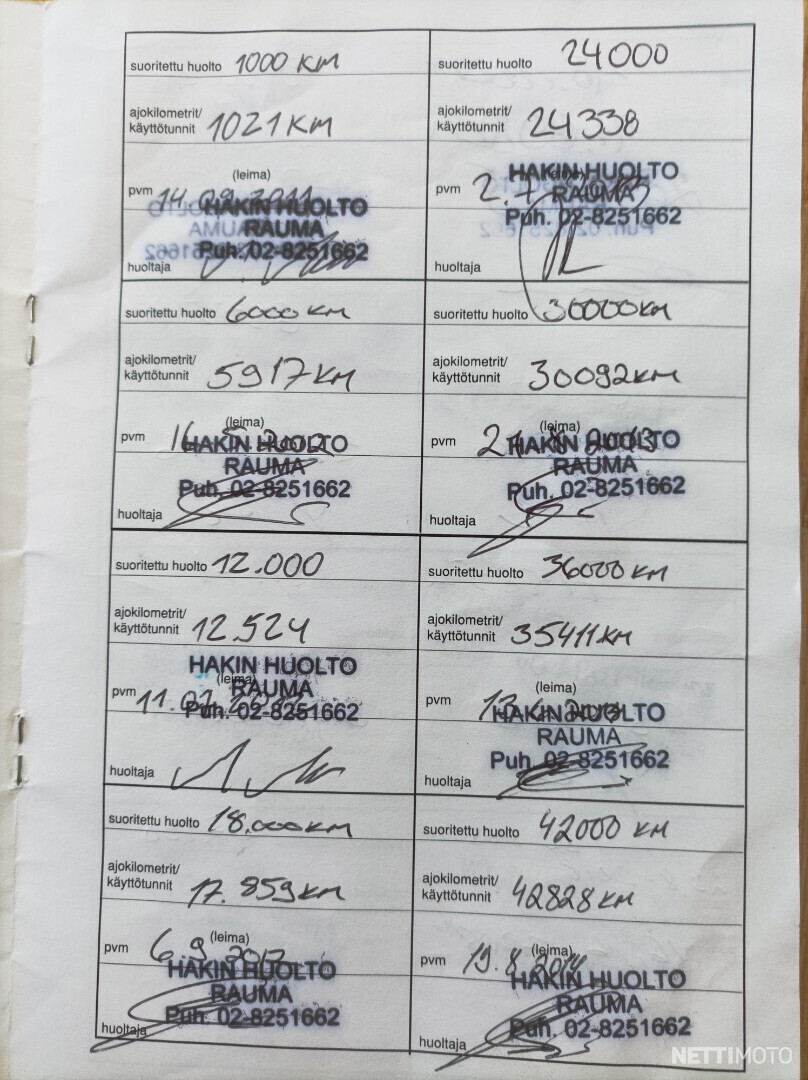 suoritettu huolto 1000 KM
ajokilometrit/
käyttötunnit 1021 KM
(leima)
pvm 14.09.2011
HAKIN HUOLTO
RAUMA
Puh. 02-8251662
huoltaja
suoritettu huolto 6000 KM
ajokilometrit/
käyttötunnit 5917 KM
(leima)
pvm
HAKIN HUOLTO
RAUMA
Puh. 02-8251662
huoltaja
suoritettu huolto 12.000
ajokilometrit/
käyttötunnit 12.524
HAKIN HUOLTO
(leima)
RAUMA
pvm
Puh. 02-8251662
huoltaja
suoritettu huolto 18.000 KM
ajokilometrit/
käyttötunnit 17.859 KM
(leima)
pvm 6.9.2012
HAKIN HUOLTO
RAUMA
Puh. 02-8251662
huoltaja
suoritettu huolto 24000
ajokilometrit/
käyttötunnit 24338
HAKIN HUOLTO
(leima)
pvm
RAUMA
Puh. 02-8251662
huoltaja
suoritettu huolto 30000 KM
ajokilometrit/
käyttötunnit 30092 KM
(leima)
pvm
HAKIN HUOLTO
RAUMA
Puh. 02-8251662
huoltaja
suoritettu huolto 36000 KM
ajokilometrit/
käyttötunnit 35411 KM
(leima)
pvm
HAKIN HUOLTO
RAUMA
Puh. 02-8251662
huoltaja
suoritettu huolto 42000 KM
ajokilometrit/
käyttötunnit 42828 KM
(leima)
pvm 19.8.2014
HAKIN HUOLTO
RAUMA
Puh. 02-8251662
huoltaja
NETTIMOTO